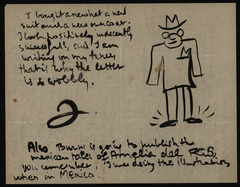 I bought a new hat and
suit and a new overcoat.
I look positively indecently
successful, and I am
writing on my knees
that is why the letter
is so wobbly.
Also. Burns is going to publish the
mexican tales of Amelia del
you remember. I was doing the illustrations
when in Mexico.